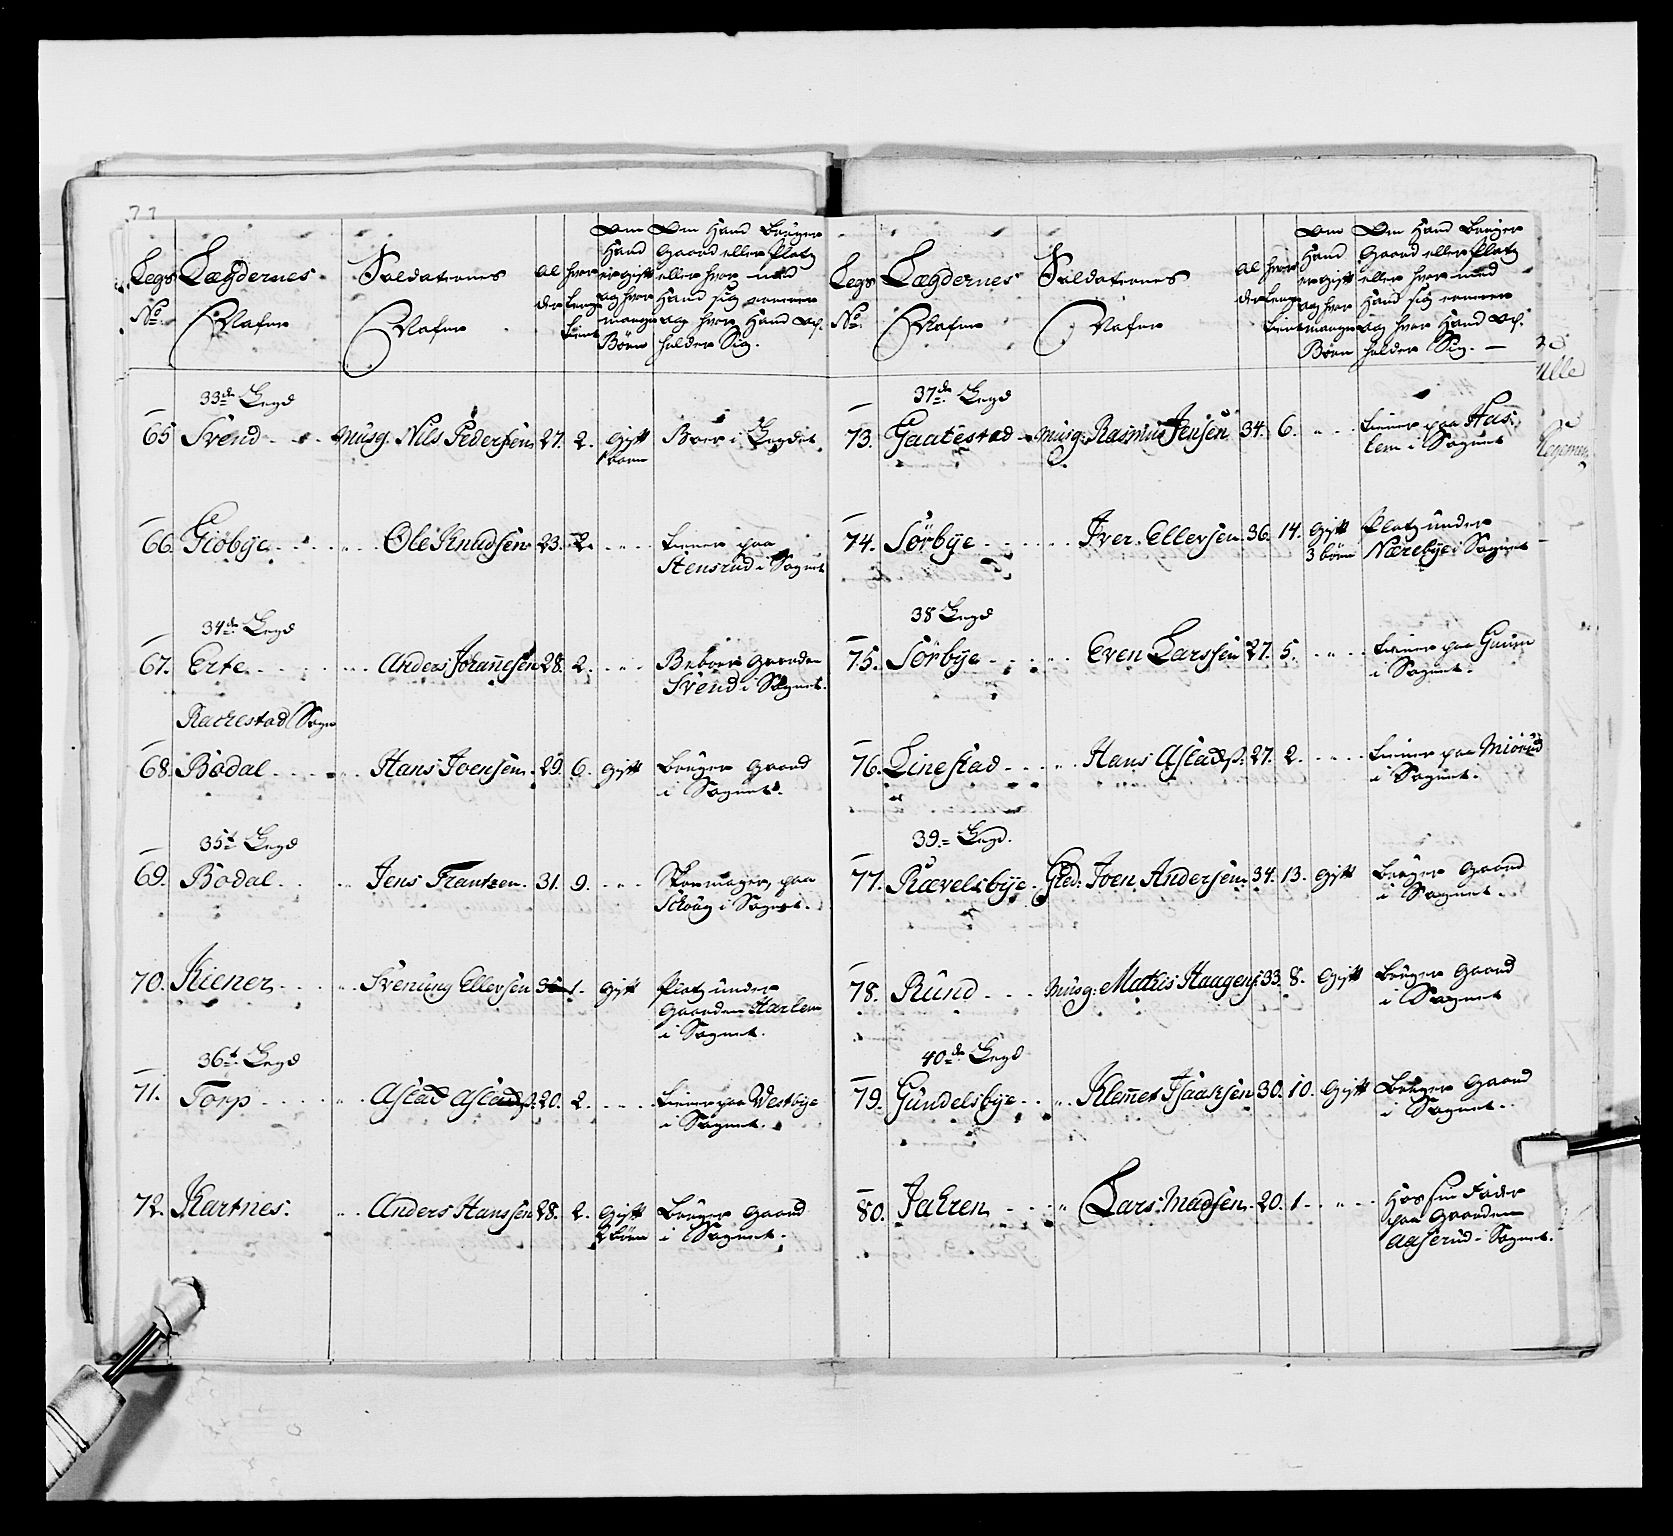 Legs No. Lægdernes Nafne Soldaternes Nafne Alder hvor lenge tient Om Hand er gift og hvor mange Børn Om Hand bruger Gaard eller Platz eller hvor med Hand sig ernærer og hvor Hand opholder Sig.
33de Legd
65 Svend Musq: Nils Pedersen 27. 2. Gift 1 barn Boer i Legdet
66. Giöbye Ole Knudsen 23. 2. tiener paa
Stensrud i Sognet
34de Legd
67. Erte Anders Johannesen 28. 2. Beboer Gaarden
Svend i Sognet.
Rackestad Sogn
68. Bödal Hans Joensen 29. 6. Gift bruger Gaard
i Sognet.
35te Legd
69. Bödal Jens Frantzen 31. 9. Skoemager paa
Schoug i Sognet.
70. Kiener Svenung Ellevsen 1. Gift Platz under
Gaarden Harlem
i Sognet.
36te Legd
71. Torp Aslad Asladss. 20. 2. tiener paa Westbye
i Sognet.
72. Kartnes. Anders Hanssen 28. 2. Gift 2 börn bruger Gaard
i Sognet.
Legs No. Lægdernes Nafne Soldaternes Nafne Alder hvor lenge tient Om Hand er gift og hvor mange Børn Om Hand bruger Gaard eller Platz eller hvor med Hand sig ernærer og hvor Hand opholder Sig.
37de Legd
73. Gaatestad Musq: Rasmus Jensen 34. 6. tiener paa Has-
lem i Sognet
74. Sörbye Iver Ellevsen 36. 14. Gift 3 börn Platz under
Nærebye i Sognet
38 Legd
75. Sörbye Even Larssen 27. 5. tiener paa
i Sognet.
76. Linestad Hans Asladss. 27. 2. tiener paa Miörud
i Sognet.
39. Legd.
77. Rævelsbye Gfed: Joen Andersen 34. 13. Gift bruger Gaard
i Sognet
78. Rund Musq: Mathis Haagens: 33. 8. Gift bruger Gaard
i Sognet
40de Legd
79. Gundelsbye Klemet Isaaksen 30. 10. Gift bruger Gaard
i Sognet.
80. Jahren Lars Madsen 20. 1. Hos sin Fader
paa Gaarden
Aaserud i Sognet.